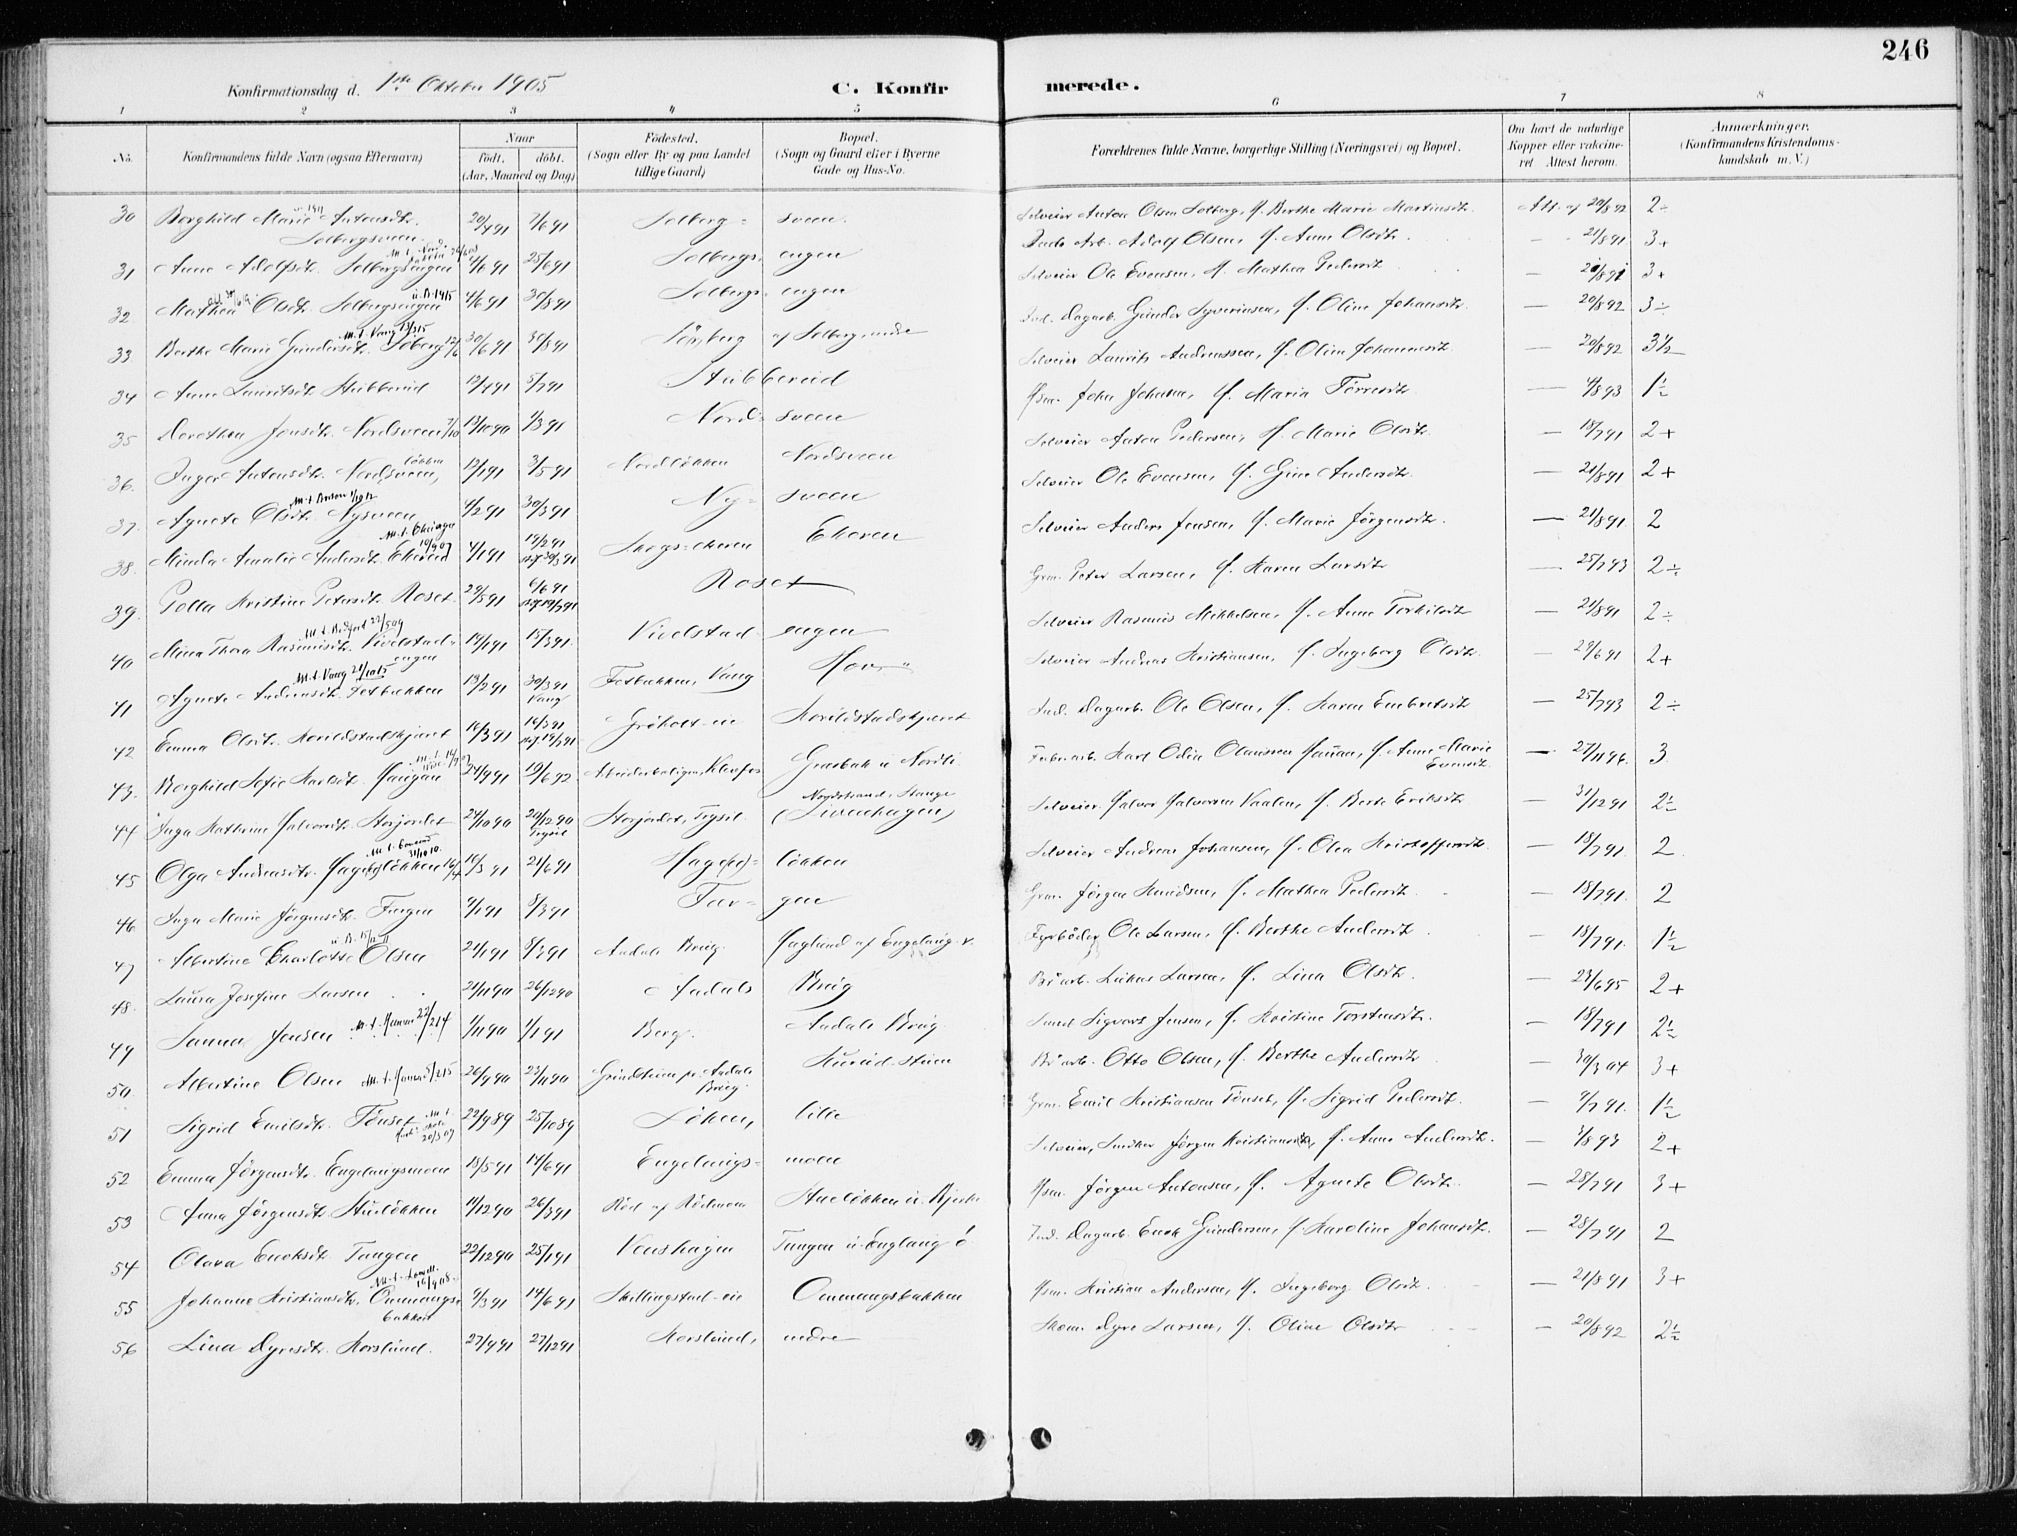 246
Konfirmationsdag d. 1ste Oktober 1905 C. Konfirmerede.
1 2 3 4 5 6 7 8
No. Konfirmandens fulde Navn (ogsaa Efternavn) Naar født. døbt. (Aar, Maaned og Dag) Fødested. (Sogn eller By og paa Landet tillige Gaard) Bopæl. (Sogn og Gaard eller i Byerne Gade og Hus-No. Forældrenes fulde Navne, borgerlige Stilling (Næringsvei) og Bopæl. Om havt de naturlige Kopper eller vakcineret. Attest herom. Anmærkninger. (Konfirmandens Kristendomskundskab m. V.)
30 Borghild Marie Antonsdtr. Solbergsveen 20/4 91 7/6 91 Solberg- sveen Selveier Anton Olsen Solberg, H. Berthe Marie Martinsdtr. Att. af 20/8 92 2÷
31 Anne Adolfsdtr. Solbergsengen /6 91 25/6 91 Solbergs- engen Arb. Adolf Olsen, H. Anne Olsdtr. — 21/8 91 3+
32 Mathea Olsdtr. Solbergsengen 4/6 91 /8 91 Solbergs- engen Selveier Ole Evensen, H. Mathea Pedersdtr. — 3+
33 Berthe Marie Gundersdtr. M.t. Vang 13/3 15 30/6 91 30/8 91 Sönsberg af Solberg, nedre Ind. Dagarb. Gunder Syversen, H. Oline Johansdtr. — 20/8 92 3÷
34 Anne Lauritsdtr. Stubberud 12/4 91 5/7 91 Stubberud Selveier Laurits Andreassen, H. Oline Johannesdtr. — 20/8 92 3½
35 Dorothea Jensdtr. Nordsveen 13/10 90 1/3 91 Nord- sveen John Johnsen, H. Maria Torresdtr. — 4/8 93 1½
36. Inger Antonsdtr. Nordsveen, løkken 12/1 91 3/5 91 Nordløkken Nordsveen Selveier Anton Pedersen, H. Marie Olsdtr. — 18/7 91 2+
37. Agnete Olsdtr. Nysveen 4/2 91 30/3 91 Ny- sveen Selveier Ole Evensen, H. Gine Andersdtr. — 21/8 91 2+
38. Minda Amalie Andersdtr. Ekeren M.t. Chicago 10/9 07 4/1 91 19/2 91 30/3 91 Skogs-ekeren Ekeren Selveier Anders Jensen, H. Marie Jörgensdtr. — 21/8 91 2
39. Polla Kristine Petersdtr. Roset 29/5 91 6/6 91 19/7 91 Roset Grm. Peter Larsen, H. Karen Larsdtr. — 25/7 93 2÷
40 Mina Thora Rasmusdtr. Vivelstadengen 14/1 91 15/3 91. Vivelstad- engen Selveier Rasmus Mikkelsen, H. Anne Torkilsdtr. — 21/8 91 2÷
41 Agnete Andreasdtr. Fotbakken M.t. Vang 21/10 15 13/2 91 30/3 91 Vang Fotbakken, Vang Hov Selveier Andreas Kristiansen, H. Ingeborg Olsdtr. — 29/6 91 2+
42 Emma Olsdtr. Korildstadskjæret 14/3 91 14/3 91 19/7 91 Gröholt-eie Korildstadskjæret Ind. Dagarb. Ole Olsen, H. Karen Embretsdtr. — 25/7 93 2÷
43. Borghild Sofie Karlsdtr. Haugan 24/9 91 19/6 92 Arbeiderboligen, Klevfos Græsbak u. Nordli Fabr.arb. Karl Odin Olaussen Haugan, H. Anne Marie Evensdtr. — 27/11 96. 3.
44 Inga Kathrine Halvorsdtr. Storjordet 24/10 90 26/12 90 Trysil Storjordet, Trysil Nordstrand, Stange (Sivenhagen) Selveier Halvor Halvorsen Vaalen, H. Berte Eriksdtr. — 31/12 91 2½
45 Olga Andreasdtr. Hage(n)løkken 10/3 91 21/6 91 Hage(n)- løkken Selveier Andreas Johansen, H. Olea Kristoffersdtr. — 18/7 91. 2
46 Inga Marie Jørgensdtr. Fargen 9/1 91 8/3 91 Far- gen Grm. Jørgen Knudsen, H. Mathea Pedersdtr. — 18/7 91. 2
47 Albertine Charlotte Olsen 21/1 91 8/3 91 Aadals Brug. Haglund af Engelaug v. Fyrbøder Ole Larsen, H. Berthe Andersdtr. — 18/7 91. 1½
48. Laura Josefine Larsen 21/11 90 26/12 90 Aadals Brug Br.arb. Lukas Larsen, H. Lina Olsdtr. — 23/6 95 2+
49 Sanna Jensen M.t. Hamar 22/2 14 1/11 90 1/1 91 Berg. Aadals Brug. Smed Sigvart Jensen, H. Kristine Torstensdtr. — 18/7 91 2½
50 Albertine Olsen M.t. Hamar 5/2 15 26/9 90 23/11 90 Grindstuen pr. Aadals Brug. Br.arb. Otto Olsen, H. Berthe Andersdtr. — 30/3 04 3+
51 Sigrid Emilsdtr. Tönset 22/9 89 25/10 89 Löken, lille Grm. Emil Kristiansen Tönset, H. Sigrid Pedersdtr. — 9/7 91. 1½
52 Emma Jörgensdtr. Engelaugsmoen 18/5 91 14/6 91 Engelaugs- moen Selveier, Snedker Jörgen Kristiansen, H. Anne Andersdtr. — 3/8 93 2+
53 Anna Jörgensdtr. Stueløkken 11/12 90 26/3 91 Röd af Rödmoen Stueløkken u. Bjerke Jörgen Antonsen, H. Agnete Olsdtr. — 28/7 91 3+
54 Olava Enoksdtr. Tangen 22/12 90 25/1 91 Venshagen Tangen u. Englaug ö Ind. Dagarb. Enok Gundersen, H. Karoline Johansdtr. — 28/7 91 2
55 Johanne Kristiansdtr. Ommangsbakken 9/3 91 14/6 91 Skellingstad-eie Ommangsbakken Kristian Andersen, H. Ingeborg Olsdtr. — 21/8 91 3+
56 Lina Dyresdtr. Korslund. 27/9 91 27/12 91 Korslund, nedre Dyre Larsen, H. Oline Olsdtr. — 20/8 92 2½